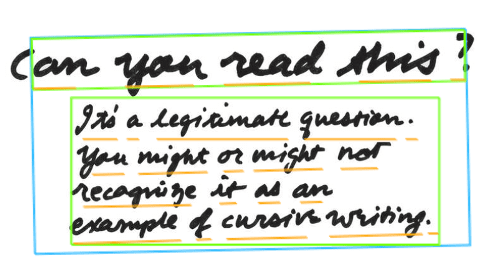 Can you read this?
It's a legitimate question.
You might or might not
recognize it as an
example of cursive writing.